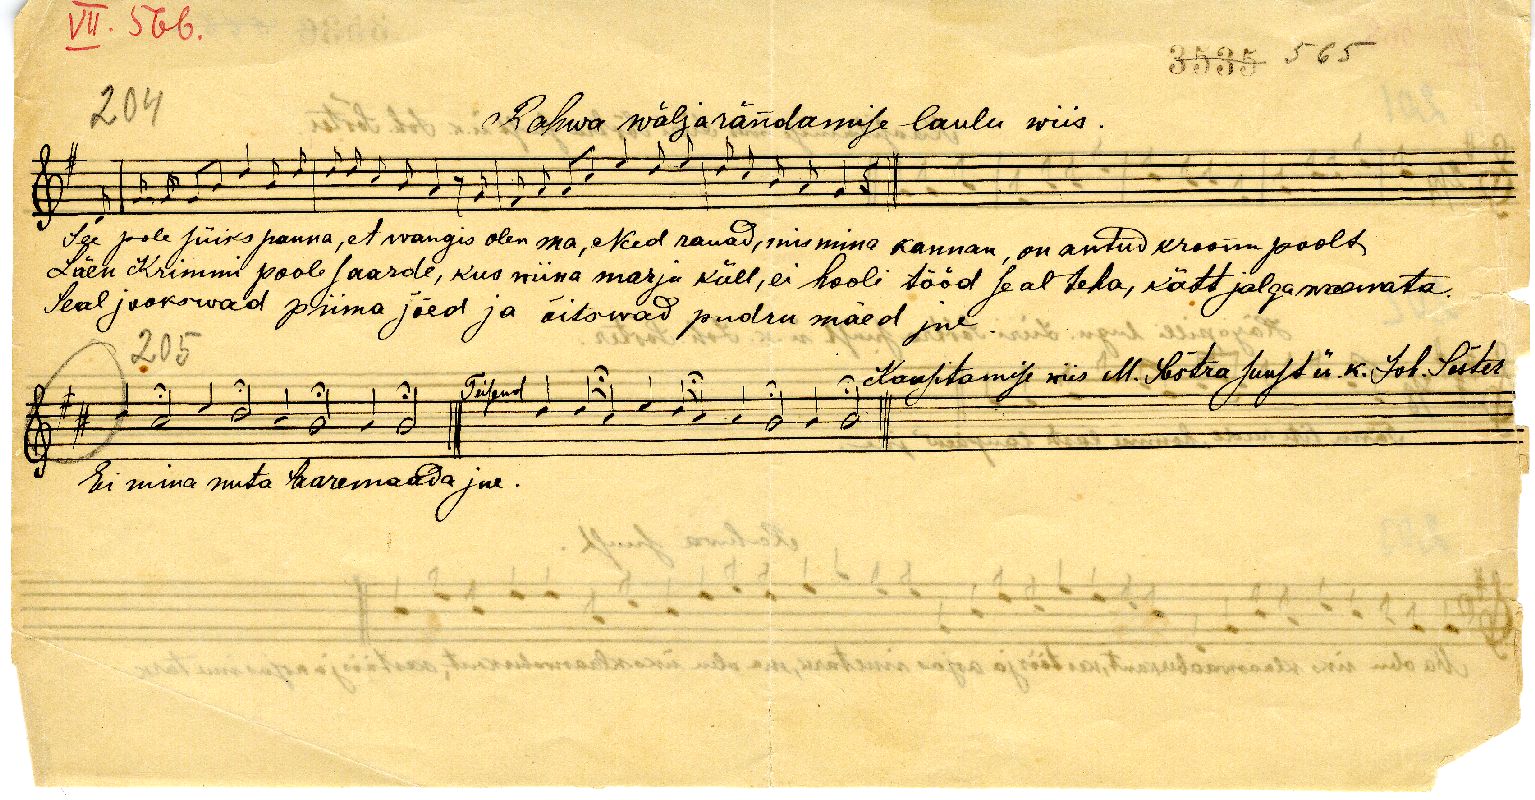 VII. 566.
3535 565
204
Rahwa wäljarändamise laulu wiis.
See pole süiks panna, et wangis olen ma, Need rauad, mis mina kannan, on antud kroonu poolt
Läen Krimmi poole saarde, kus wiina marju küll, ei hooli tööd seal teha, kätt jalga waewata.
Seal jookswad piima jõed ja õitswad pudru mäed jne.
205
Teisend
Kauptamise wiis M. Sõstra suust ü. k. Joh. Sõster
Ei mina nuta Saaremaada jne.